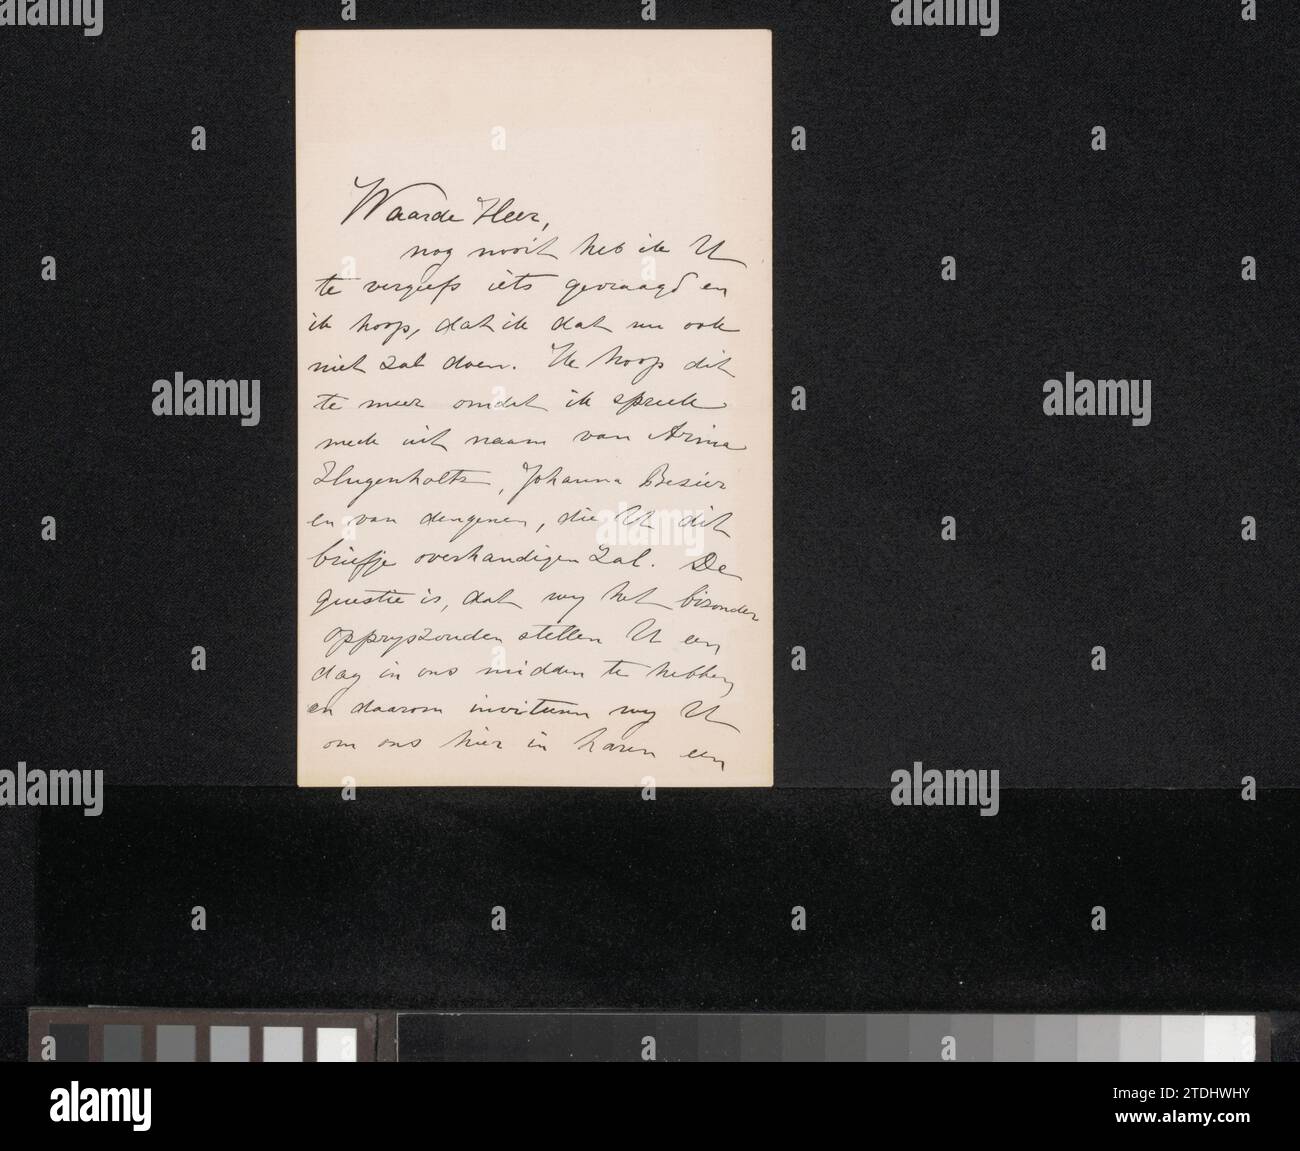 Waarde Heer,
nog nooit heb ik U
te vergeefs iets gevraagd en
ik hoop, dat ik dat nu ook
niet zal doen. Ik hoop dit
te meer omdat ik spreek
mede uit naam van Arina
Hugenholtz, Johanna Besier
en van dengenen, die U dit
briefje overhandigen zal. De
questie is, dat wy het bizonder
oppryszouden stellen U een
dag in ons midden te hebben
en daarom inviteeren wy U
om ons hier in Laren een
alamy
Image ID: 2TDHWHY
www.alamy.com